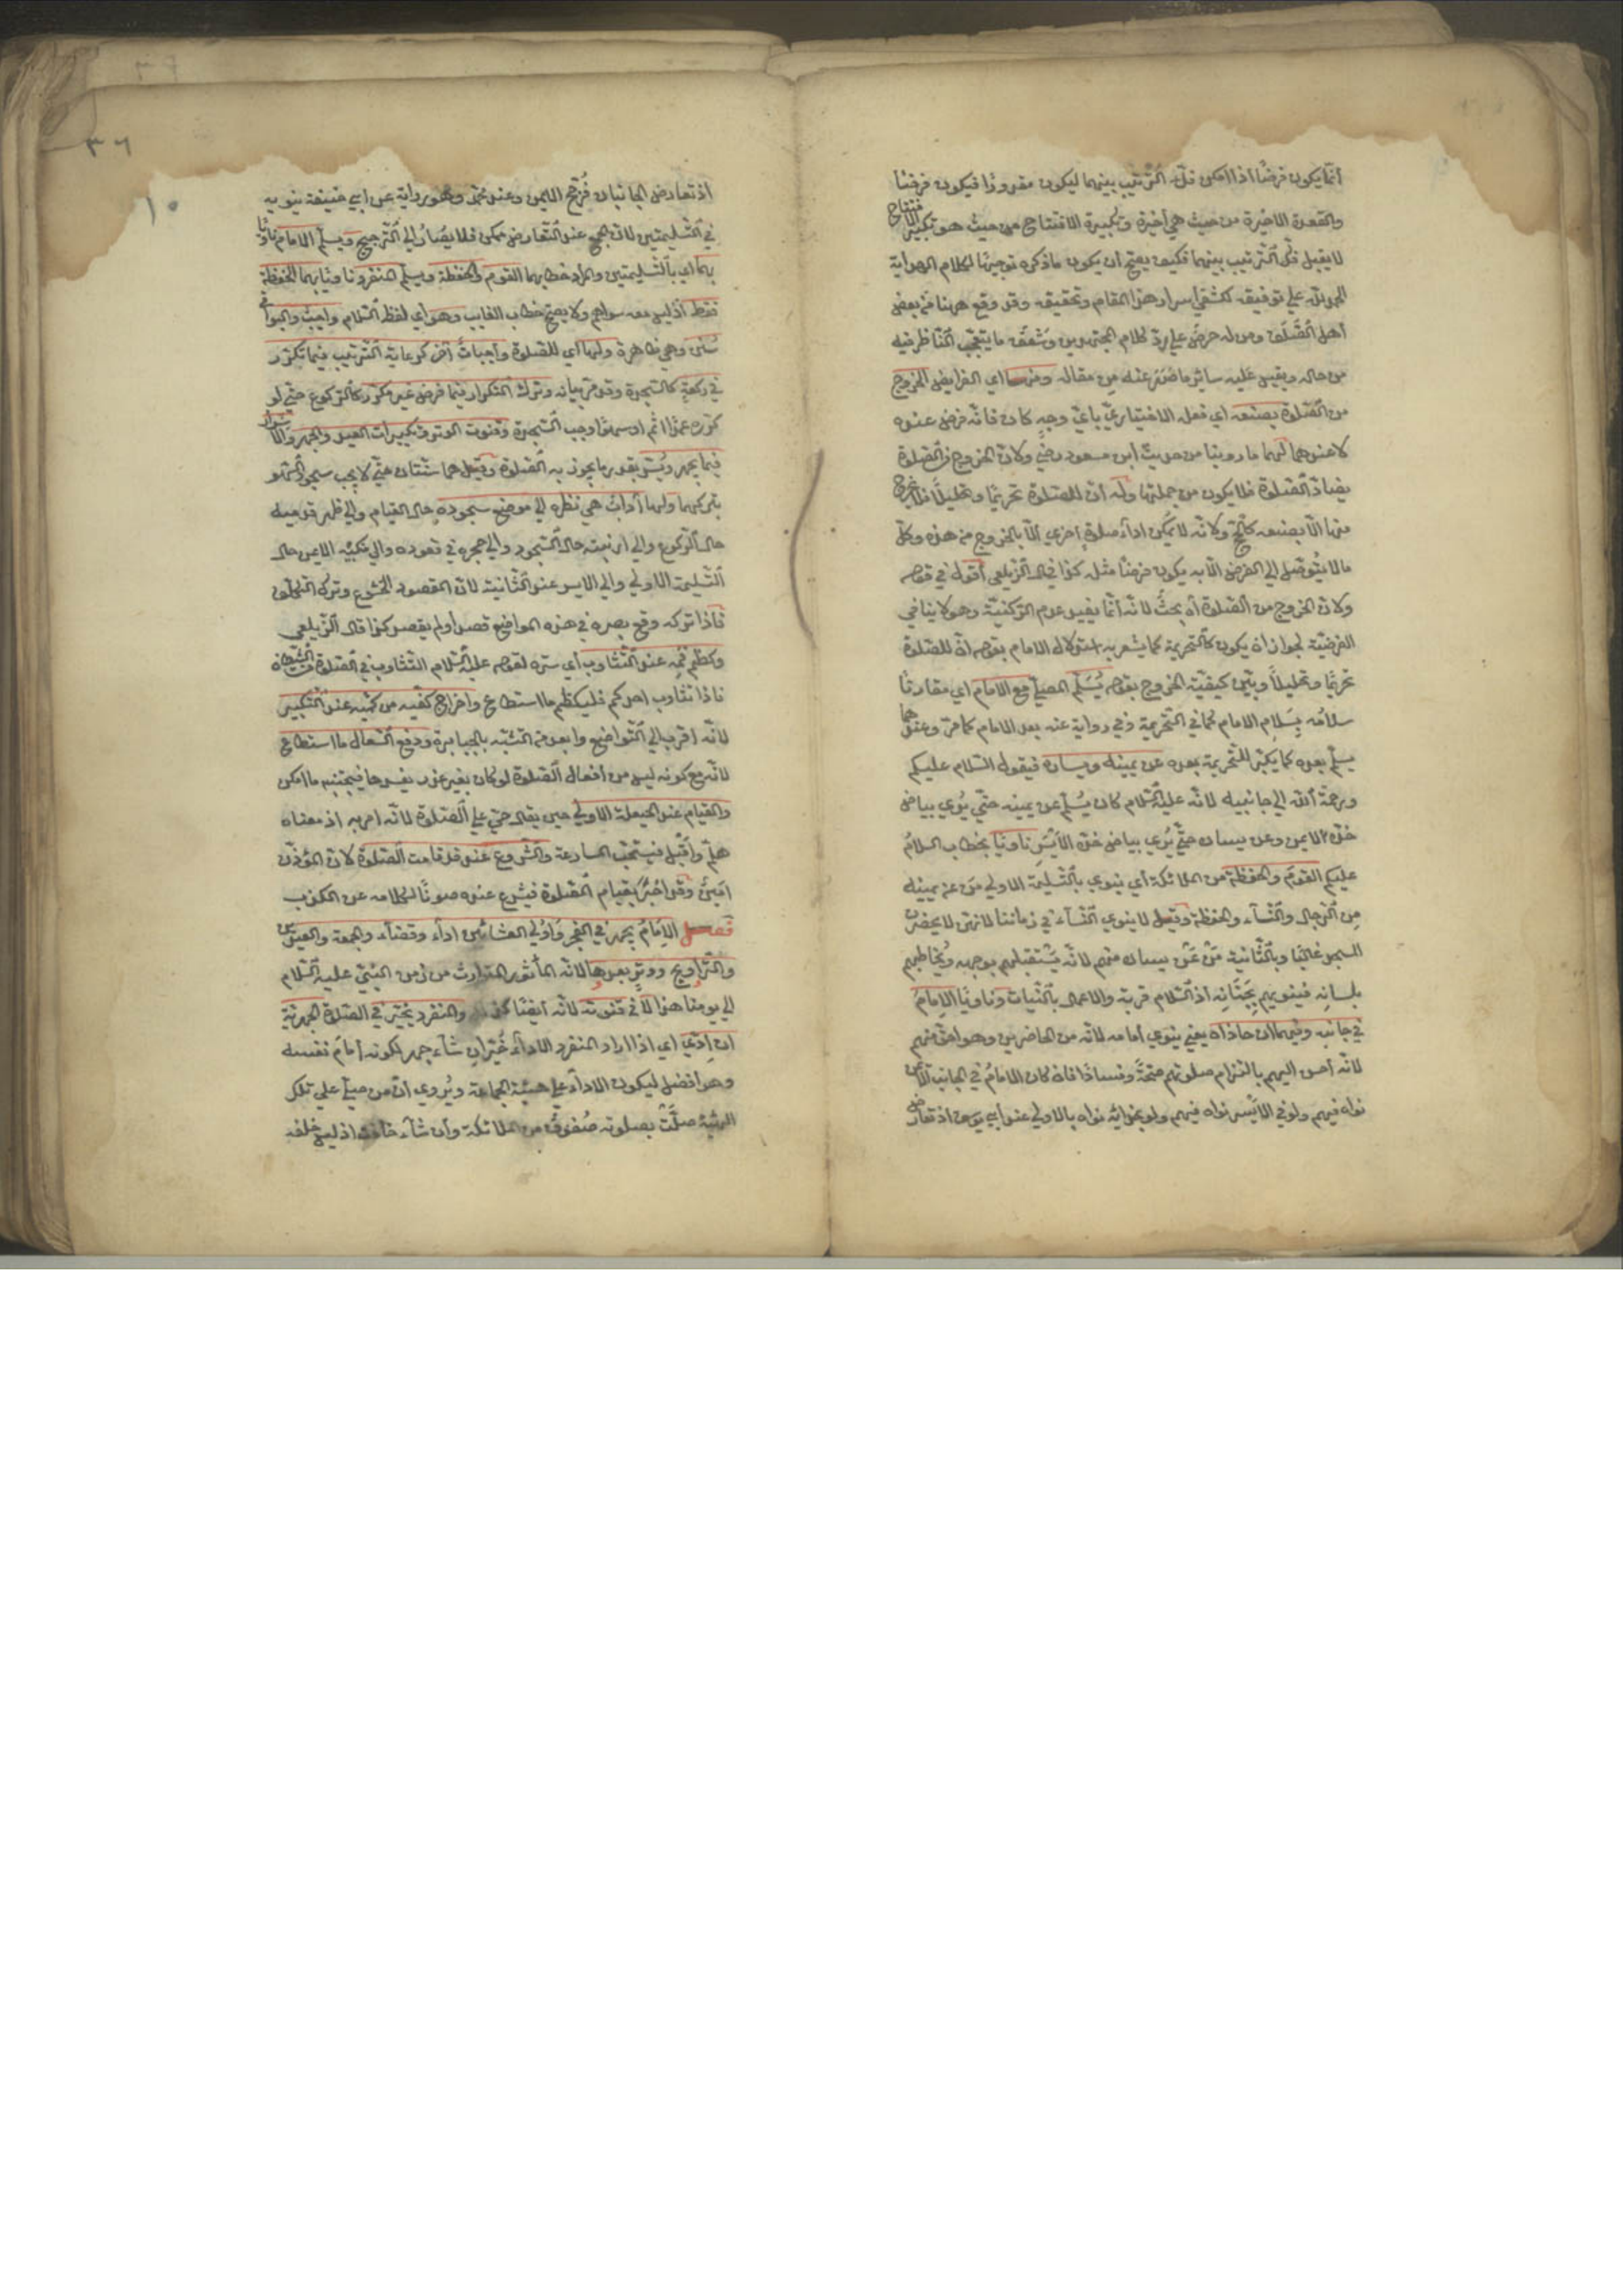 انما يكون فرضا اذا امكن فك الترتيب بينهما ليكون مقدورا فيكون فرضا
والقعدة الاخيرة من حيث هي اخيرة وتكبيرة الافتتاح من حيث هو تكبير الافتتاح
لا يقبل فك الترتيب بينهما فكيف يصح ان يكون ما ذكره توجيها لكلام الهداية
الحمد لله علي توفيقه لكشف اسرار هذا المقام وتحقيقه وقد وقع ههنا من بعض
اهل الصلف ومن له حرص علي رد كلام المجتهدين وشغف ما يتعجب الناظر فيه
من حاله ويقيس عليه سائر ما صدر عنه من مقاله ومنها اي الفرايض الخروج
من الصلوة بصنعه اي فعله الاختياري باي وجه كان فانه فرض عنده
لا عندهما لهما ما روينا من حديث ابن مسعود رضي ولان الخروج من الصلوة
يضاد الصلوة فلا يكون من جملتها وله ان للصلوة تحريما وتحليلا فلا يخرج
منها الا بصنعه كالحج ولانه لا يمكن اداء صلوة اخري الا بالخروج من هذه وكل
ما لا يتوصل الي الفرض الا به يكون فرضا مثله كذا قال الزيلعي اقول في قوله
ولان الخروج من الصلوة اه بحث لانه انما يفيد عدم الركنية وهو لا ينافي
الفرضية لجواز ان يكون كالتحريمة كما يشعر به استدلال الامام بقوله ان للصلوة
تحريما وتحليلا وبين كيفية الخروج بقوله يسلم المصلي مع الامام اي مقارنا
سلامه بسلام الامام كما في التحريمة وفي رواية عنه بعد الامام كما مر وعندهما
يسلم بعده كما يكبر للتحريمة بعده عن يمينه ويساره فيقول السلام عليكم
ورحمة الله الي جانبيه لانه عليه السلام كان يسلم عن يمينه حتي يري بياض
خده الايمن وعن يساره حتي يري بياض خده الايسر ناويا بخطاب السلام
عليكم القوم والحفظة من الملائكة اي ينوي بالتسليمة الاولي من عن يمينه
من الرجال والنساء والحفظة وقيل لا ينوي النساء في زماننا لانهن لا يحضرن
المسجد غالبا وبالثانية من عن يساره منهم لانه يستقبلهم بوجهه ويخاطبهم
بلسانه فينويهم بجنانه اذ السلام قربة والاعمال بالنيات وناويا الامام
في جانبه وفيهما ان حاذاه يعني ينوي امامه لانه من الحاضرين وهو احق منهم
لانه احسن اليهم بالتزام صلوتهم صحة وفسادا فان كان الامام في الجانب الايمن
نواه فيهم ولو في الايسر نواه فيهم ولو بحذائه نواه بالاولي عند ابي يوسف اذ تعارض
اذ تعارض الجانبان فرجح اليمين وعند محمد وهو رواية عن ابي حنيفة ينويه
في التسليمتين لان الجمع عند التعارض ممكن فلا يصار الي الترجيح ويسلم الامام ناويا
بهما اي بالتسليمتين والمراد خطابهما القوم والحفظة ويسلم المنفرد ناويا بهما الحفظة
فقط اذ ليس معه سواهم ولا يصح خطاب الغايب وهو اي لفظ السلام واجب والبواقي
سنن وهي ظاهرة ولها اي للصلوة واجبات اخر كرعاية الترتيب فيما تكرر
في ركعة كالسجدة وقد مر بيانه وترك التكرار فيما فرض غير مكرر كالركوع حتي لو
كرره عمدا اثم او سهوا وجب السجدة وقنوت الوتر وتكبيرات العيد والجهر والاسرار
فيما يجهر ويسر بقدر ما يجوز به الصلوة وقيل هما سنتان حتي لا يجب سجود السهو
بتركهما ولها اداب هي نظره الي موضع سجوده حال القيام والي ظهر قدميه
حال الركوع والي ارنبته حال السجود والي حجره في قعوده والي منكبه الايمن حال
التسليمة الاولي والي الايسر عند الثانية لان المقصود الخشوع وترك التكلف
فاذا تركه وقع بصره في هذه المواضع قصد او لم يقصد كذا قال الزيلعي
وكظم فمه عند التثاوب اي ستره لقوله عليه السلام التثاوب في الصلوة من الشيطان
فاذا تثاوب احدكم فليكظم ما استطاع واخراج كفيه من كميه عند التكبير
لانه اقرب الي التواضع وابعد من التشبه بالجبابرة ودفع السعال ما استطاع
لانه مع كونه ليس من افعال الصلوة لو كان بغير عذر يفسدها فيجتنبه ما امكن
والقيام عند الحيعلة الاولي حين يقال حي علي الصلوة لانه امر به اذ معناه
هلم واقبل فيستحب المسارعة والشروع عند قد قامت الصلوة لان المؤذن
امين وقد اخبر بقيام الصلوة فيشرع عنده صونا لكلامه عن الكذب
فصل الامام يجهر في الفجر واولي العشائين اداء وقضاء والجمعة والعيدين
والتراويح ووتر بعدها لانه الماثور المتوارث من زمن النبي عليه السلام
الي يومنا هذا لا في قنوته لانه ايضا كذلك والمنفرد يخير في الصلوة الجهرية
ان ادي اي اذا اراد المنفرد الاداء خير ان شاء جهر لكونه امام نفسه
وهو افضل ليكون الاداء علي هيئة الجماعة ويروي ان من صلي علي تلك
الهيئة صلت بصلوته صفوف من الملائكة وان شاء خافت اذ ليس خلفه